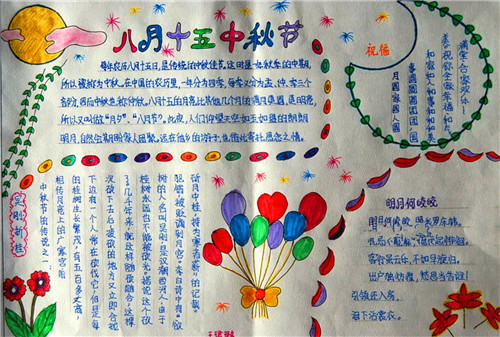 八月十五中秋节
每年农历八月十五日,是传统的中秋佳节。这时是一年秋季的中期,
所以被称为中秋。在中国的农历里,一年分为四季,每季又分为孟、仲、季三个
部分,因而中秋也称仲秋。八月十五的月亮比其他几个月的满月更圆,更明亮,
所以又叫做“月夕”,“八月节”。此夜,人们仰望天空如玉如盘的朗朗
明月,自然会期盼家人团聚。远在他乡的游子,也借此寄托思念之情。
祝福
月圆家圆人圆
恭祝你全家幸福和
满堂合家欢乐!
吴刚折桂
中秋节的传说之一:
相传月亮上的广寒宫前
的桂树生长繁茂,有五百多丈高,
下边有一个人常在砍伐它,但是每
次砍下去后,被砍的地方又立即合拢
了几千年来,就这样随砍随合,这棵
桂树永远也不能被砍光。据说这个砍
树的人名叫吴刚是汉朝西河人,由于
犯错被贬谪到月宫”李白诗中有“欲
斫月中桂,持为寒者薪”的记载。
明月何皎皎
明月何皎皎,照我罗床帏。
忧愁不能寐,揽衣起徘徊。
客行虽云乐,不如早旋归。
出户独彷徨,愁思当告谁!
引领还入房,
泪下沾裳衣。